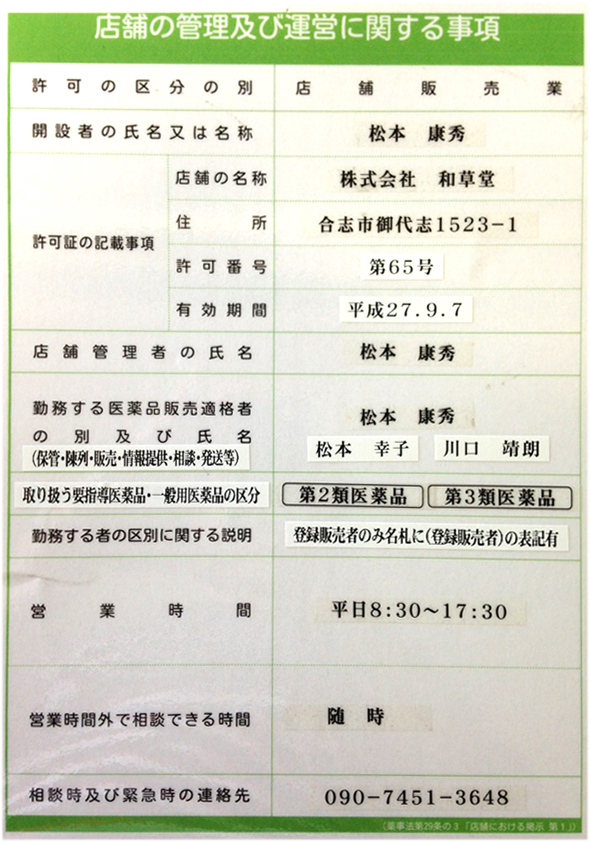 店舗の管理及び運営に関する事項
許可の区分の別 店舗販売業
開設者の氏名又は名称 松本 康秀
許可証の記載事項
店舗の名称 株式会社 和草堂
住所 合志市御代志1523-1
許可番号 第65号
有効期間 平成27.9.7
店舗管理者の氏名 松本 康秀
勤務する医薬品販売適格者
の別及び氏名
(保管・陳列・販売・情報提供・相談・発送等)
松本 康秀
松本 幸子 川口 靖朗
取り扱う要指導医薬品・一般用医薬品の区分 第2類医薬品 第3類医薬品
勤務する者の区別に関する説明 登録販売者のみ名札に(登録販売者)の表記有
営業時間 平日8:30〜17:30
営業時間外で相談できる時間 随時
相談時及び緊急時の連絡先 090-7451-3648
(薬事法第29条の3「店舗における掲示 第1」)